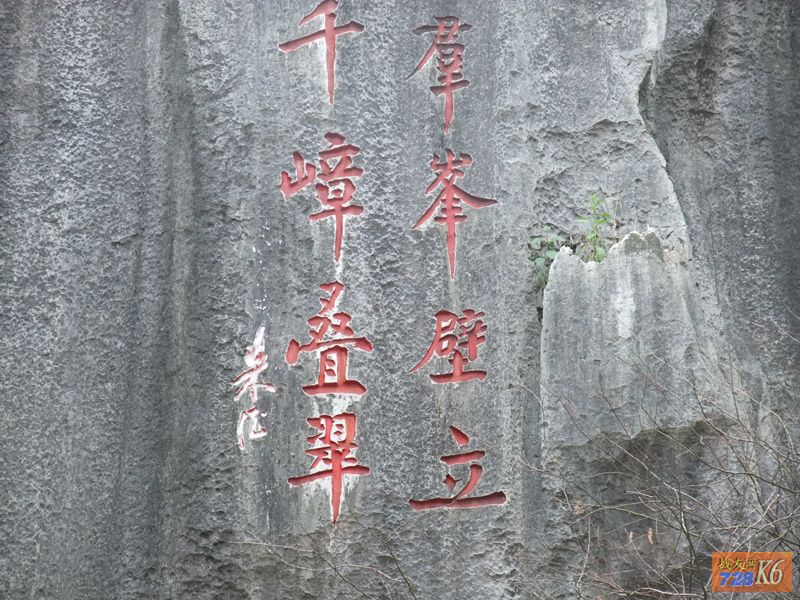 羣峯壁立
千嶂叠翠
朱德
战友网
728K6